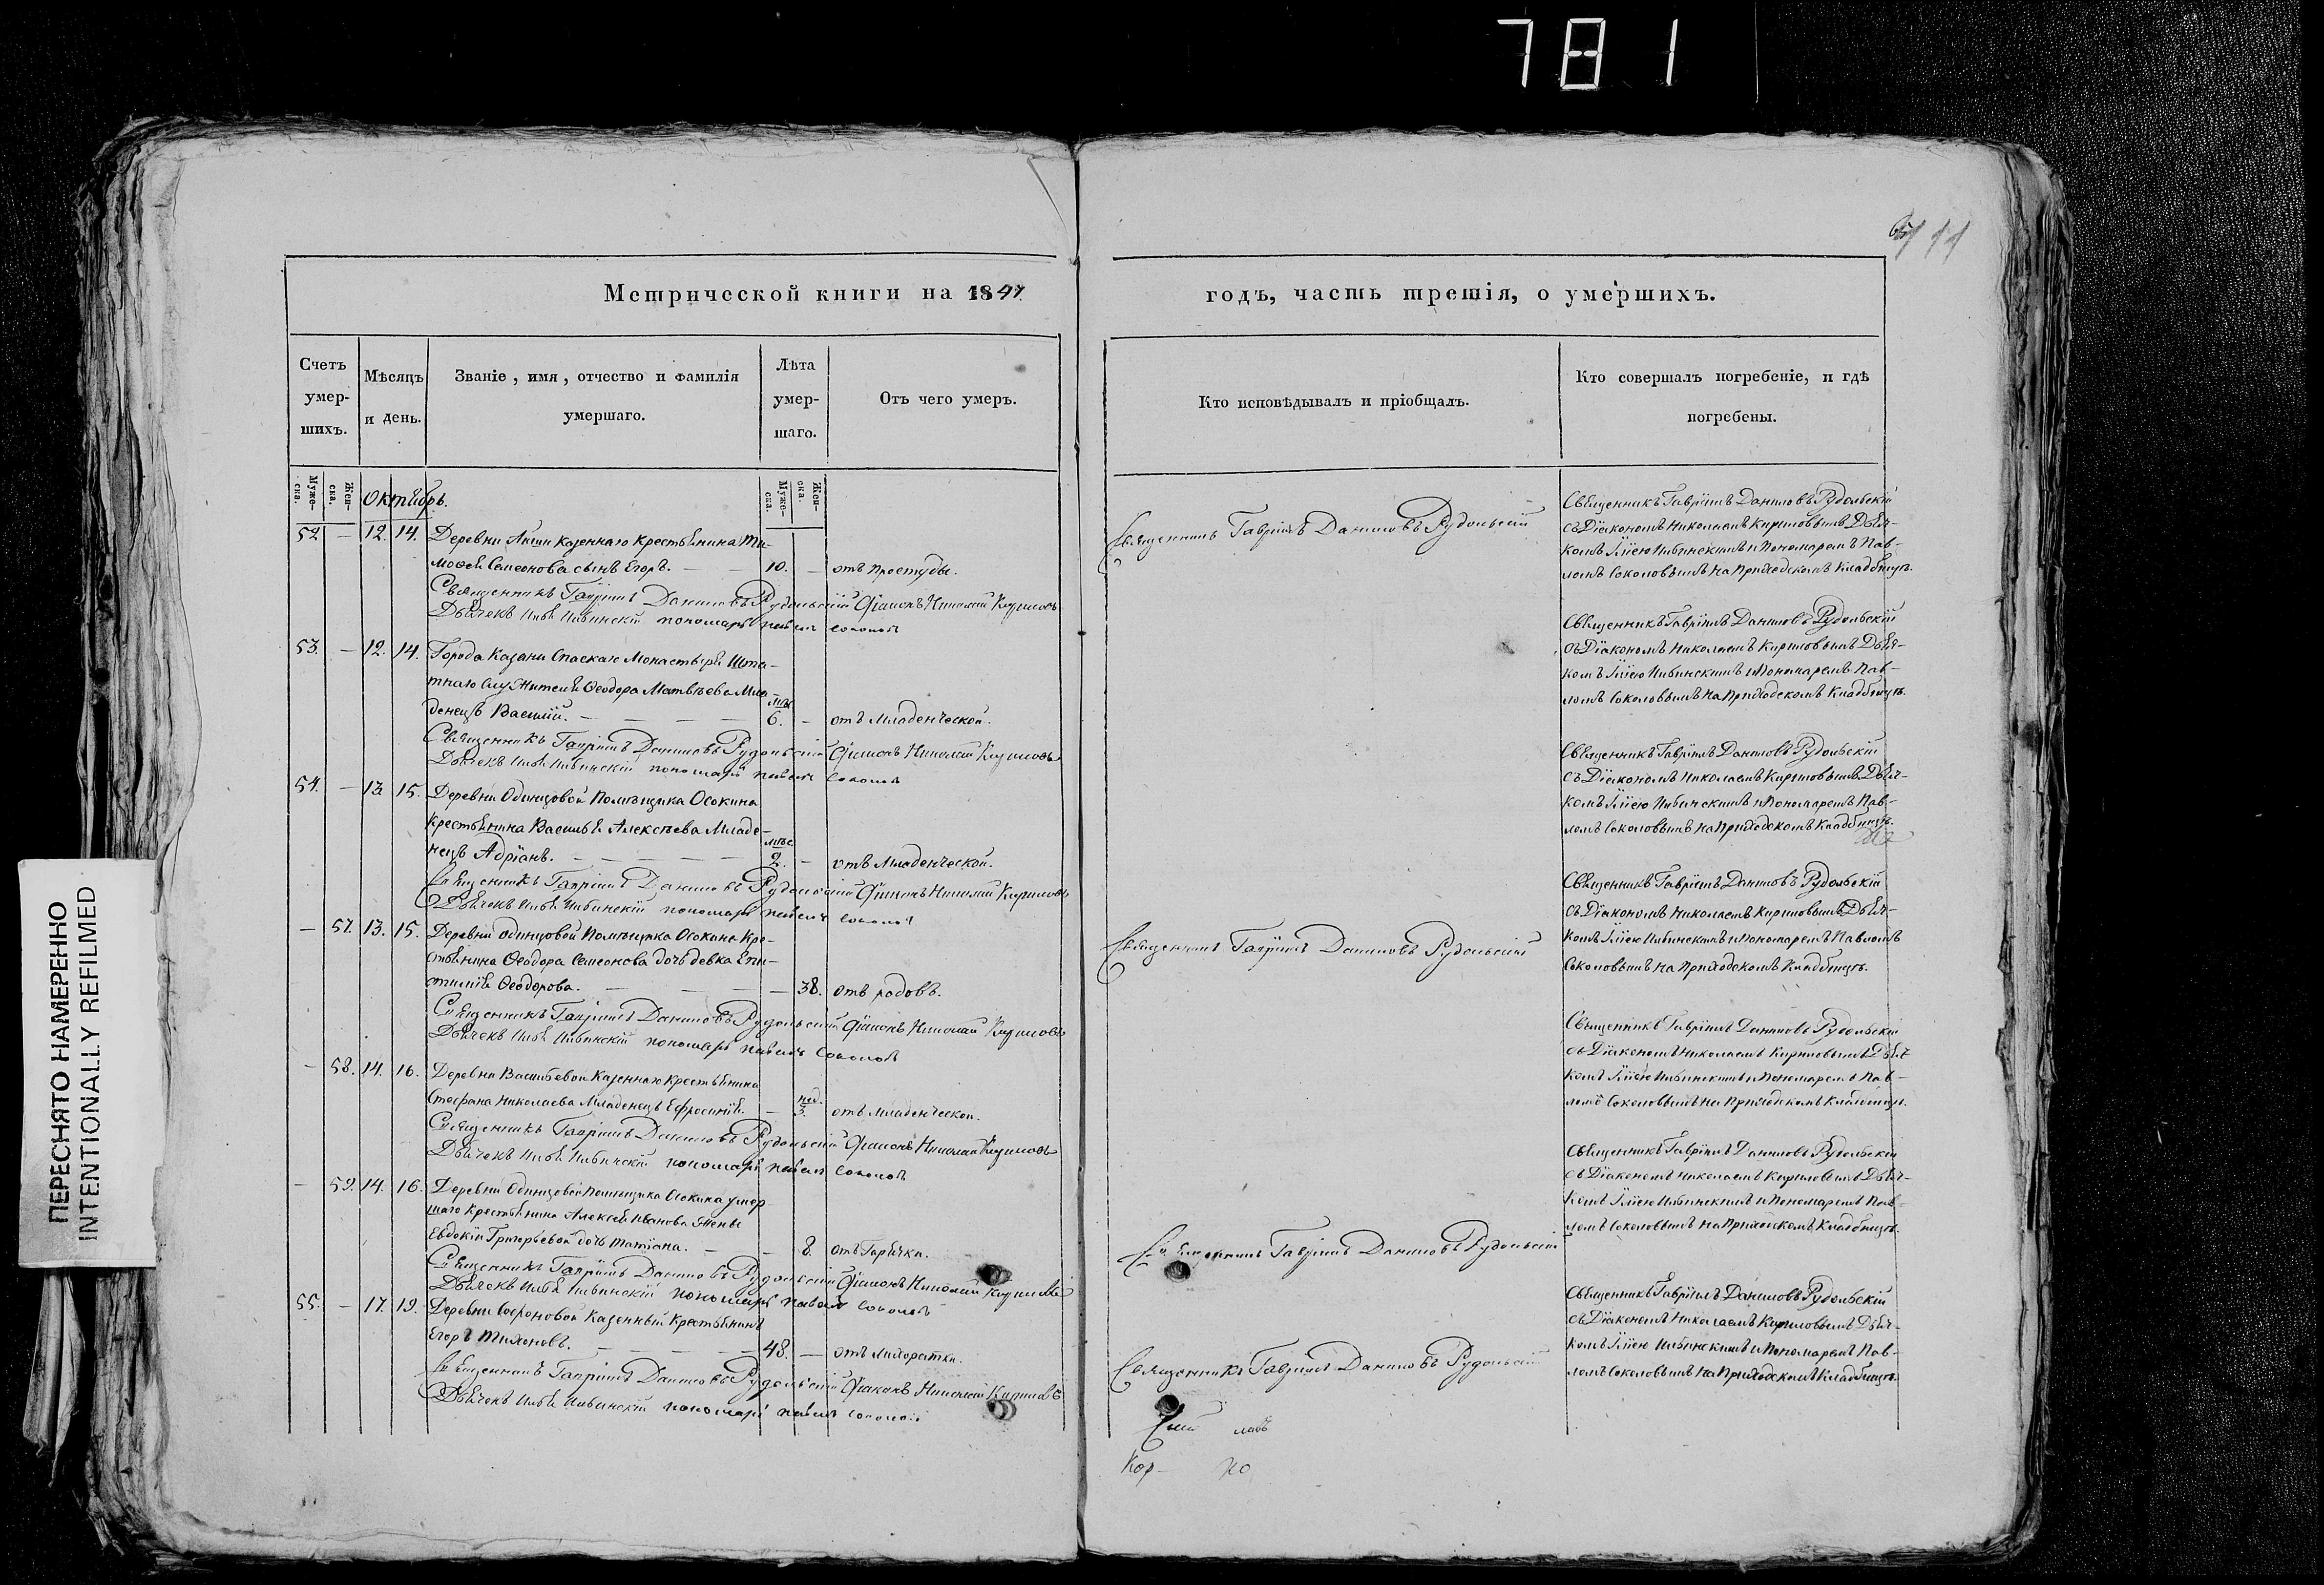 781
ПЕРЕСНЯТО НАМЕРЕННО
INTENTIONALLY REFILMED
11
Метрической книги на 1847
годъ, часть третія, о умершихъ.
Счетъ умер-шихъ.
Мѣсяцъ и день.
Званіе, имя, отчество и фамилія умершаго.
Лѣта умер-шаго.
Отъ чего умеръ.
Кто исповѣдывалъ и пріобщалъ.
Кто совершалъ погребеніе, и гдѣ погребены.
Муже-ска.
Жен-ска.
Октябрь.
Муже-ска.
Жен-ска.
52 — 12. 14. Деревни казеннаго крестьянина Ти-
моѳея Семенова сынъ Егоръ. — 10. — отъ простуды.
Священникъ Гавріилъ Даниловъ Рудольскій Діаконъ Николай Кириловъ
Дьячекъ Илья пономарь Павелъ Соколовъ
Священникъ Гавріилъ Даниловъ Рудольскій
Священникъ Гавріилъ Даниловъ Рудольскій
съ Діакономъ Николаемъ Кириловымъ Дьяч-
комъ Иліею и Пономаремъ Пав-
ломъ Соколовымъ на Приходскомъ Кладбищѣ.
53. — 12. 14. Города Казани Спаскаго Монастыря Шта-
тнаго служителя Ѳеодора Матвѣева Мла-
денецъ Василій. — мѣс. 6. — отъ Младенческой.
Священникъ Гавріилъ Даниловъ Рудольскій Діаконъ Николай Кириловъ
Дьячекъ Илья пономарь Павелъ Соколовъ
Священникъ Гавріилъ Даниловъ Рудольскій
съ Діакономъ Николаемъ Кириловымъ Дьяч-
комъ Иліею и Пономаремъ Пав-
ломъ Соколовымъ на Приходскомъ Кладбищѣ.
54. — 13. 15. Деревни Одинцовой Помѣщика Осокина
крестьянина Василья Алексѣева Младе-
нецъ Адріанъ. — мѣс. 2. — отъ Младенческой.
Священникъ Гавріилъ Даниловъ Рудольскій Діаконъ Николай Кириловъ
Дьячекъ Илья пономарь Павелъ Соколовъ
Священникъ Гавріилъ Даниловъ Рудольскій
съ Діакономъ Николаемъ Кириловымъ Дьяч-
комъ Иліею и Пономаремъ Пав-
ломъ Соколовымъ на Приходскомъ Кладбищѣ.
— 57. 13. 15. Деревни Одинцовой Помѣщика Осокина Кре-
стьянина Ѳеодора Семенова дочь девка Епи-
стимія Ѳеодорова. — 38. отъ родовъ.
Священникъ Гавріилъ Даниловъ Рудольскій Діаконъ Николай Кириловъ
Дьячекъ Илья пономарь Павелъ Соколовъ
Священникъ Гавріилъ Даниловъ Рудольскій
Священникъ Гавріилъ Даниловъ Рудольскій
съ Діакономъ Николаемъ Кириловымъ Дьяч-
комъ Иліею и Пономаремъ Павломъ
Соколовымъ на Приходскомъ Кладбищѣ.
— 58. 14. 16. Деревни Васильевой Казеннаго крестьянина
Стефана Николаева Младенецъ Ефросинія. — нед. 3. отъ Младенческой.
Священникъ Гавріилъ Даниловъ Рудольскій Діаконъ Николай Кириловъ
Дьячекъ Илья пономарь Павелъ Соколовъ
Священникъ Гавріилъ Даниловъ Рудольскій
съ Діакономъ Николаемъ Кириловымъ Дьяч-
комъ Иліею и Пономаремъ Пав-
ломъ Соколовымъ на Приходскомъ Кладбищѣ.
— 59. 14. 16. Деревни Одинцовой Помѣщика Осокина умер-
шаго Крестьянина Алексѣя Иванова Жены
Евдокіи Григорьевой дочь Татіана. — 8. отъ Горячки.
Священникъ Гавріилъ Даниловъ Рудольскій Діаконъ Николай Кириловъ
Дьячекъ Илья пономарь Павелъ Соколовъ
Священникъ Гавріилъ Даниловъ Рудольскій
Священникъ Гавріилъ Даниловъ Рудольскій
съ Діакономъ Николаемъ Кириловымъ Дьяч-
комъ Иліею и Пономаремъ Пав-
ломъ Соколовымъ на Приходскомъ Кладбищѣ.
55. — 17. 19. Деревни Софоновой Казенный Крестьянинъ
Егоръ Тихоновъ. — 48. — отъ Лихорадки.
Священникъ Гавріилъ Даниловъ Рудольскій Діаконъ Николай Кириловъ
Дьячекъ Илья пономарь Павелъ Соколовъ
Священникъ Гавріилъ Даниловъ Рудольскій
Священникъ Гавріилъ Даниловъ Рудольскій
съ Діакономъ Николаемъ Кириловымъ Дьяч-
комъ Иліею и Пономаремъ Пав-
ломъ Соколовымъ на Приходскомъ Кладбищѣ.
Кор-